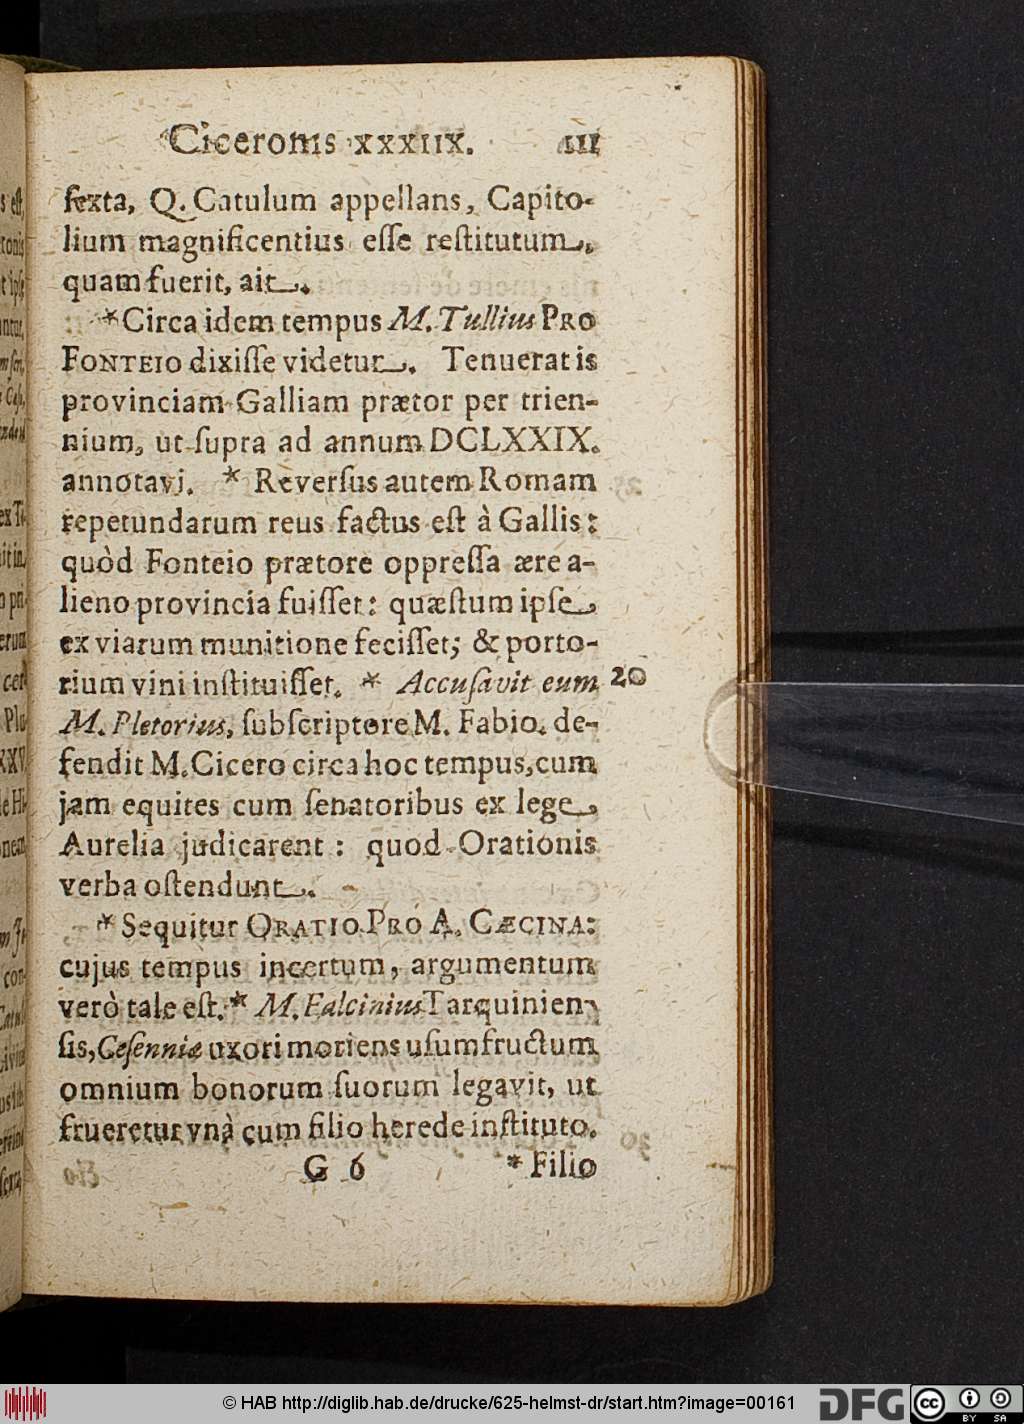 Ciceronis XXXIIX. 111
ſexta, Q. Catulum appellans, Capito-
lium magnificentius eſſe reſtitutum,
quam fuerit, ait.
*Circa idem tempus M. Tullius PRO
FONTEIO dixiſſe videtur. Tenuerat is
provinciam Galliam prætor per trien-
nium, ut ſupra ad annum DCLXXIX.
annotavi. * Reverſus autem Romam
repetundarum reus factus eſt à Gallis:
quòd Fonteio prætore oppreſſa ære a-
lieno provincia fuiſſet: quæſtum ipſe,
ex viarum munitione feciſſet; & porto-
rium vini inſtituiſſet. * Accuſavit eum 20
M. Pletorius, ſubſcriptore M. Fabio. de-
fendit M. Cicero circa hoc tempus, cum
jam equites cum ſenatoribus ex lege,
Aurelia judicarent: quod Orationis
verba oſtendunt.
*Sequitur ORATIO PRO A. CÆCINA:
cujus tempus incertum, argumentum
verò tale eſt. * M. Falcinius Tarquinien-
ſis, Ceſenniæ uxori moriens uſumfructum
omnium bonorum ſuorum legavit, ut
frueretur vnà cum filio herede inſtituto.
G 6 * Filio
© HAB http://diglib.hab.de/drucke/625-helmst-dr/start.htm?image=00161
DFG
cc
BY SA